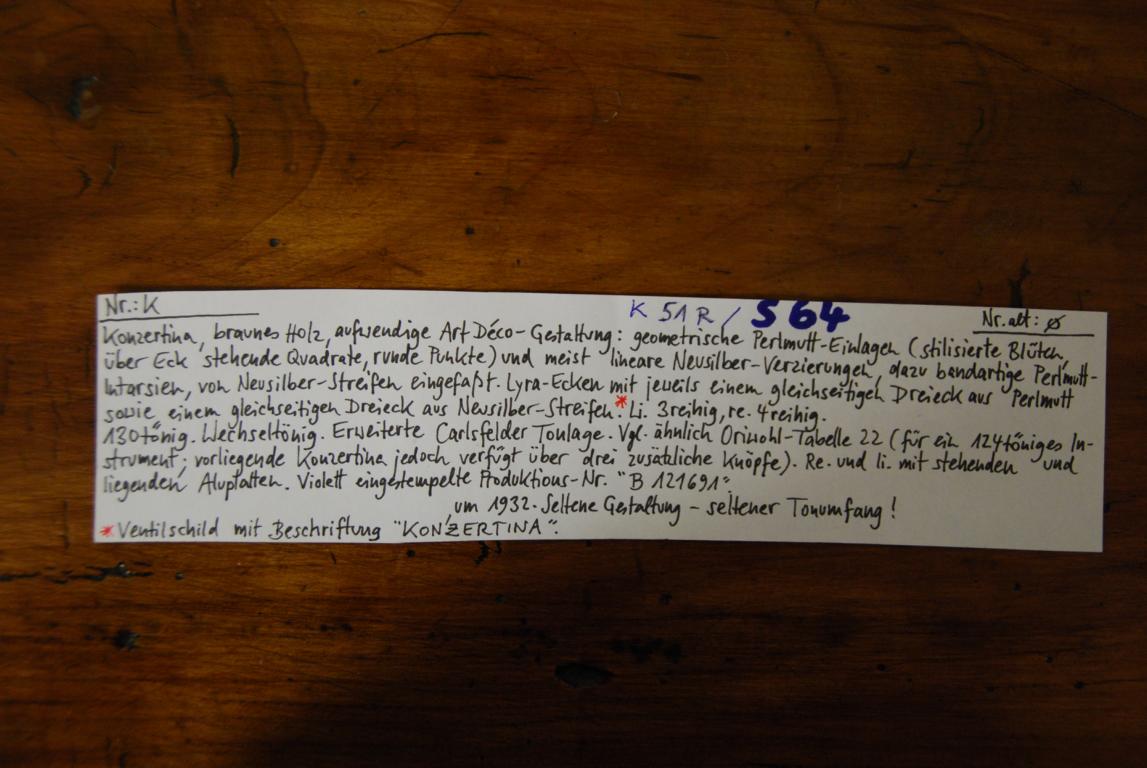 Nr.: K K 51 R / S 64 Nr. alt: ø
Konzertina, braunes Holz, aufwendige Art Déco-Gestaltung: geometrische Perlmutt-Einlagen (stilisierte Blüten,
über Eck stehende Quadrate, runde Punkte) und meist lineare Neusilber-Verzierungen, dazu bandartige Perlmutt-
Intarsien, von Neusilber-Streifen eingefaßt. Lyra-Ecken mit jeweils einem gleichseitigen Dreieck aus Perlmutt
sowie einem gleichseitigen Dreieck aus Neusilber-Streifen.* Li. 3reihig, re. 4reihig.
130tönig. Wechseltönig. Erweiterte Carlsfelder Tonlage. Vgl. ähnlich Oriwohl-Tabelle 22 (für ein 124töniges In-
strument; vorliegende Konzertina jedoch verfügt über drei zusätzliche Knöpfe). Re. und li. mit stehenden und
liegenden Aluplatten. Violett eingestempelte Produktions-Nr. "B 121691".
um 1932. Seltene Gestaltung - seltener Tonumfang!
* Ventilschild mit Beschriftung "KONZERTINA".